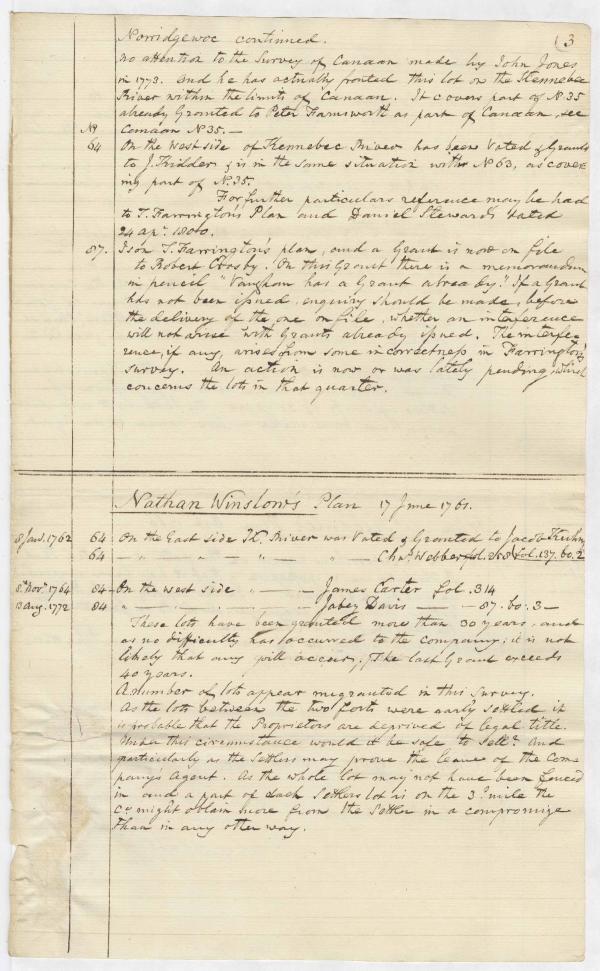 Norridgewoc continued. (3
no attention to the Survey of Canaan made by John Jones
in 1773. and he has actually fronted this lot on the Kennebec
River within the limits of Canaan. It covers part of No. 35
already Granted to Peter Farnsworth as part of Canaan, see
No Canaan No 35.—
64 On the West side of Kennebec River has been Voted & Granted
to J. Kidder & is in the same situation with No 63, as cover
ing part of No. 35.
For further particulars reference may be had
to T. Farrington's Plan and Daniel Steward's dated
24 apl. 1800.
87. Is on T. Farrington's plan, and a Grant is now on file
to Robert Crosby. On this Grant there is a memorandum
in pencil "Vaughan has a Grant already." If a Grant
has not been issued, enquiry should be made, before
the delivery of the one on file, whether an interference
will not arise with Grants already issued. The interfe-
rence, if any, arises from some incorrectness in Farrington's
survey. An action is now or was lately pending, which
concerns the lots in that quarter.
Nathan Winslow's Plan 17 June 1761.
8 Jan. 1762 64 On the East side Kc. River was Voted & Granted to Jacob
64 — " — " — " — " Chas. Webber fol. 258 (fol. 137. bo. 2
8th Novr. 1764 84 - On the west side " — — James Carter fol. 314
13 Aug. 1772 84 " — Jabez Davis — — 87. bo: 3 —
These lots have been granted more than 30 years, and
as no difficulty has occurred to the company; it is not
likely that any will occur; The last Grant exceeds
40 years.
A number of lots appear ungranted in this Survey.
As the lots between the two forts were early settled it
is probable that the Proprietors are deprived of legal title.
Under this circumstance would it be safe to Sell? And
particularly as the Settlers may prove the leave of the Com
pany's Agent. As the whole lot may not have been fenced
in and a part of each Settlers lot is on the 3d. mile the
Co. might obtain more from the Settler in a compromize
than in any other way.